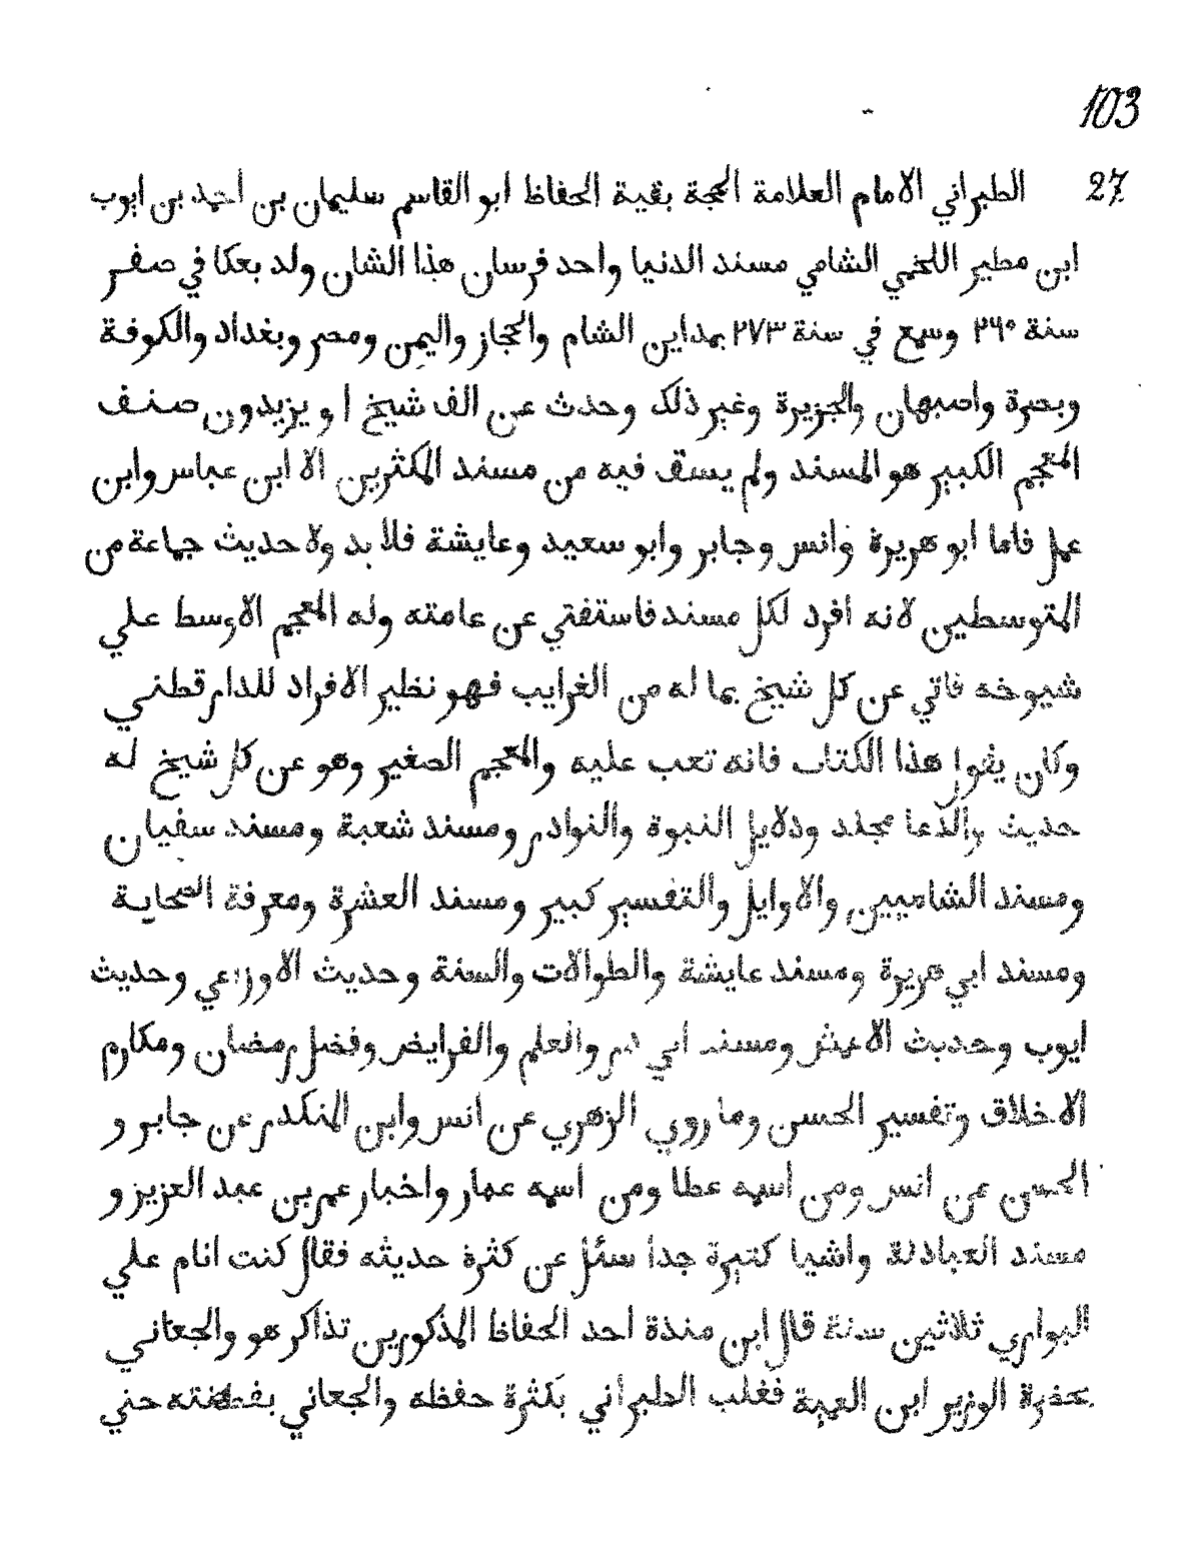 103
27 الطبراني الامام العلامة الحجة بقية الحفاظ ابو القاسم سليمان بن احمد بن ايوب
ابن مطير اللخمي الشامي مسند الدنيا واحد فرسان هذا الشان ولد بعكا في صفر
سنة ٢٦٠ وسمع في سنة ٢٧٣ بمداين الشام والحجاز واليمن ومصر وبغداد والكوفة
وبصرة واصبهان والجزيرة وغير ذلك وحدث عن الف شيخ او يزيدون صنف
المعجم الكبير هو المسند ولم يسق فيه من مسند المكثرين الا ابن عباس وابن
عمر فاما ابو هريرة وانس وجابر وابو سعيد وعايشة فلا بد ولا حديث جماعة من
المتوسطين لانه افرد لكل مسند فاستفتي عن عامته وله المعجم الاوسط علي
شيوخه فاتي عن كل شيخ بما له من الغرايب فهو نظير الافراد للدارقطني
وكان يقول هذا الكتاب فانه تعب عليه والمعجم الصغير وهو عن كل شيخ له
حديث والدعا مجلد ودلايل النبوة والنوادر ومسند شعبة ومسند سفيان
ومسند الشاميين والاوايل والتفسير كبير ومسند العشرة ومعرفة الصحابة
ومسند ابي هريرة ومسند عايشة والطوالات والسنة وحديث الاوزاعي وحديث
ايوب وحديث الاعمش ومسند ابي ذر والعلم والفرايض وفضل رمضان ومكارم
الاخلاق وتفسير الحسن وما روي الزهري عن انس وابن المنكدر عن جابر و
الحسن عن انس ومن اسمه عطا ومن اسمه عمار واخبار عمر بن عبد العزيز و
مسند العبادلة واشيا كثيرة جدا سئل عن كثرة حديثه فقال كنت انام علي
البواري ثلاثين سنة قال ابن مندة احد الحفاظ المذكورين تذاكر هو والجعاني
بحضرة الوزير ابن العمية فغلب الطبراني بكثرة حفظه والجعاني بفطنته حتي